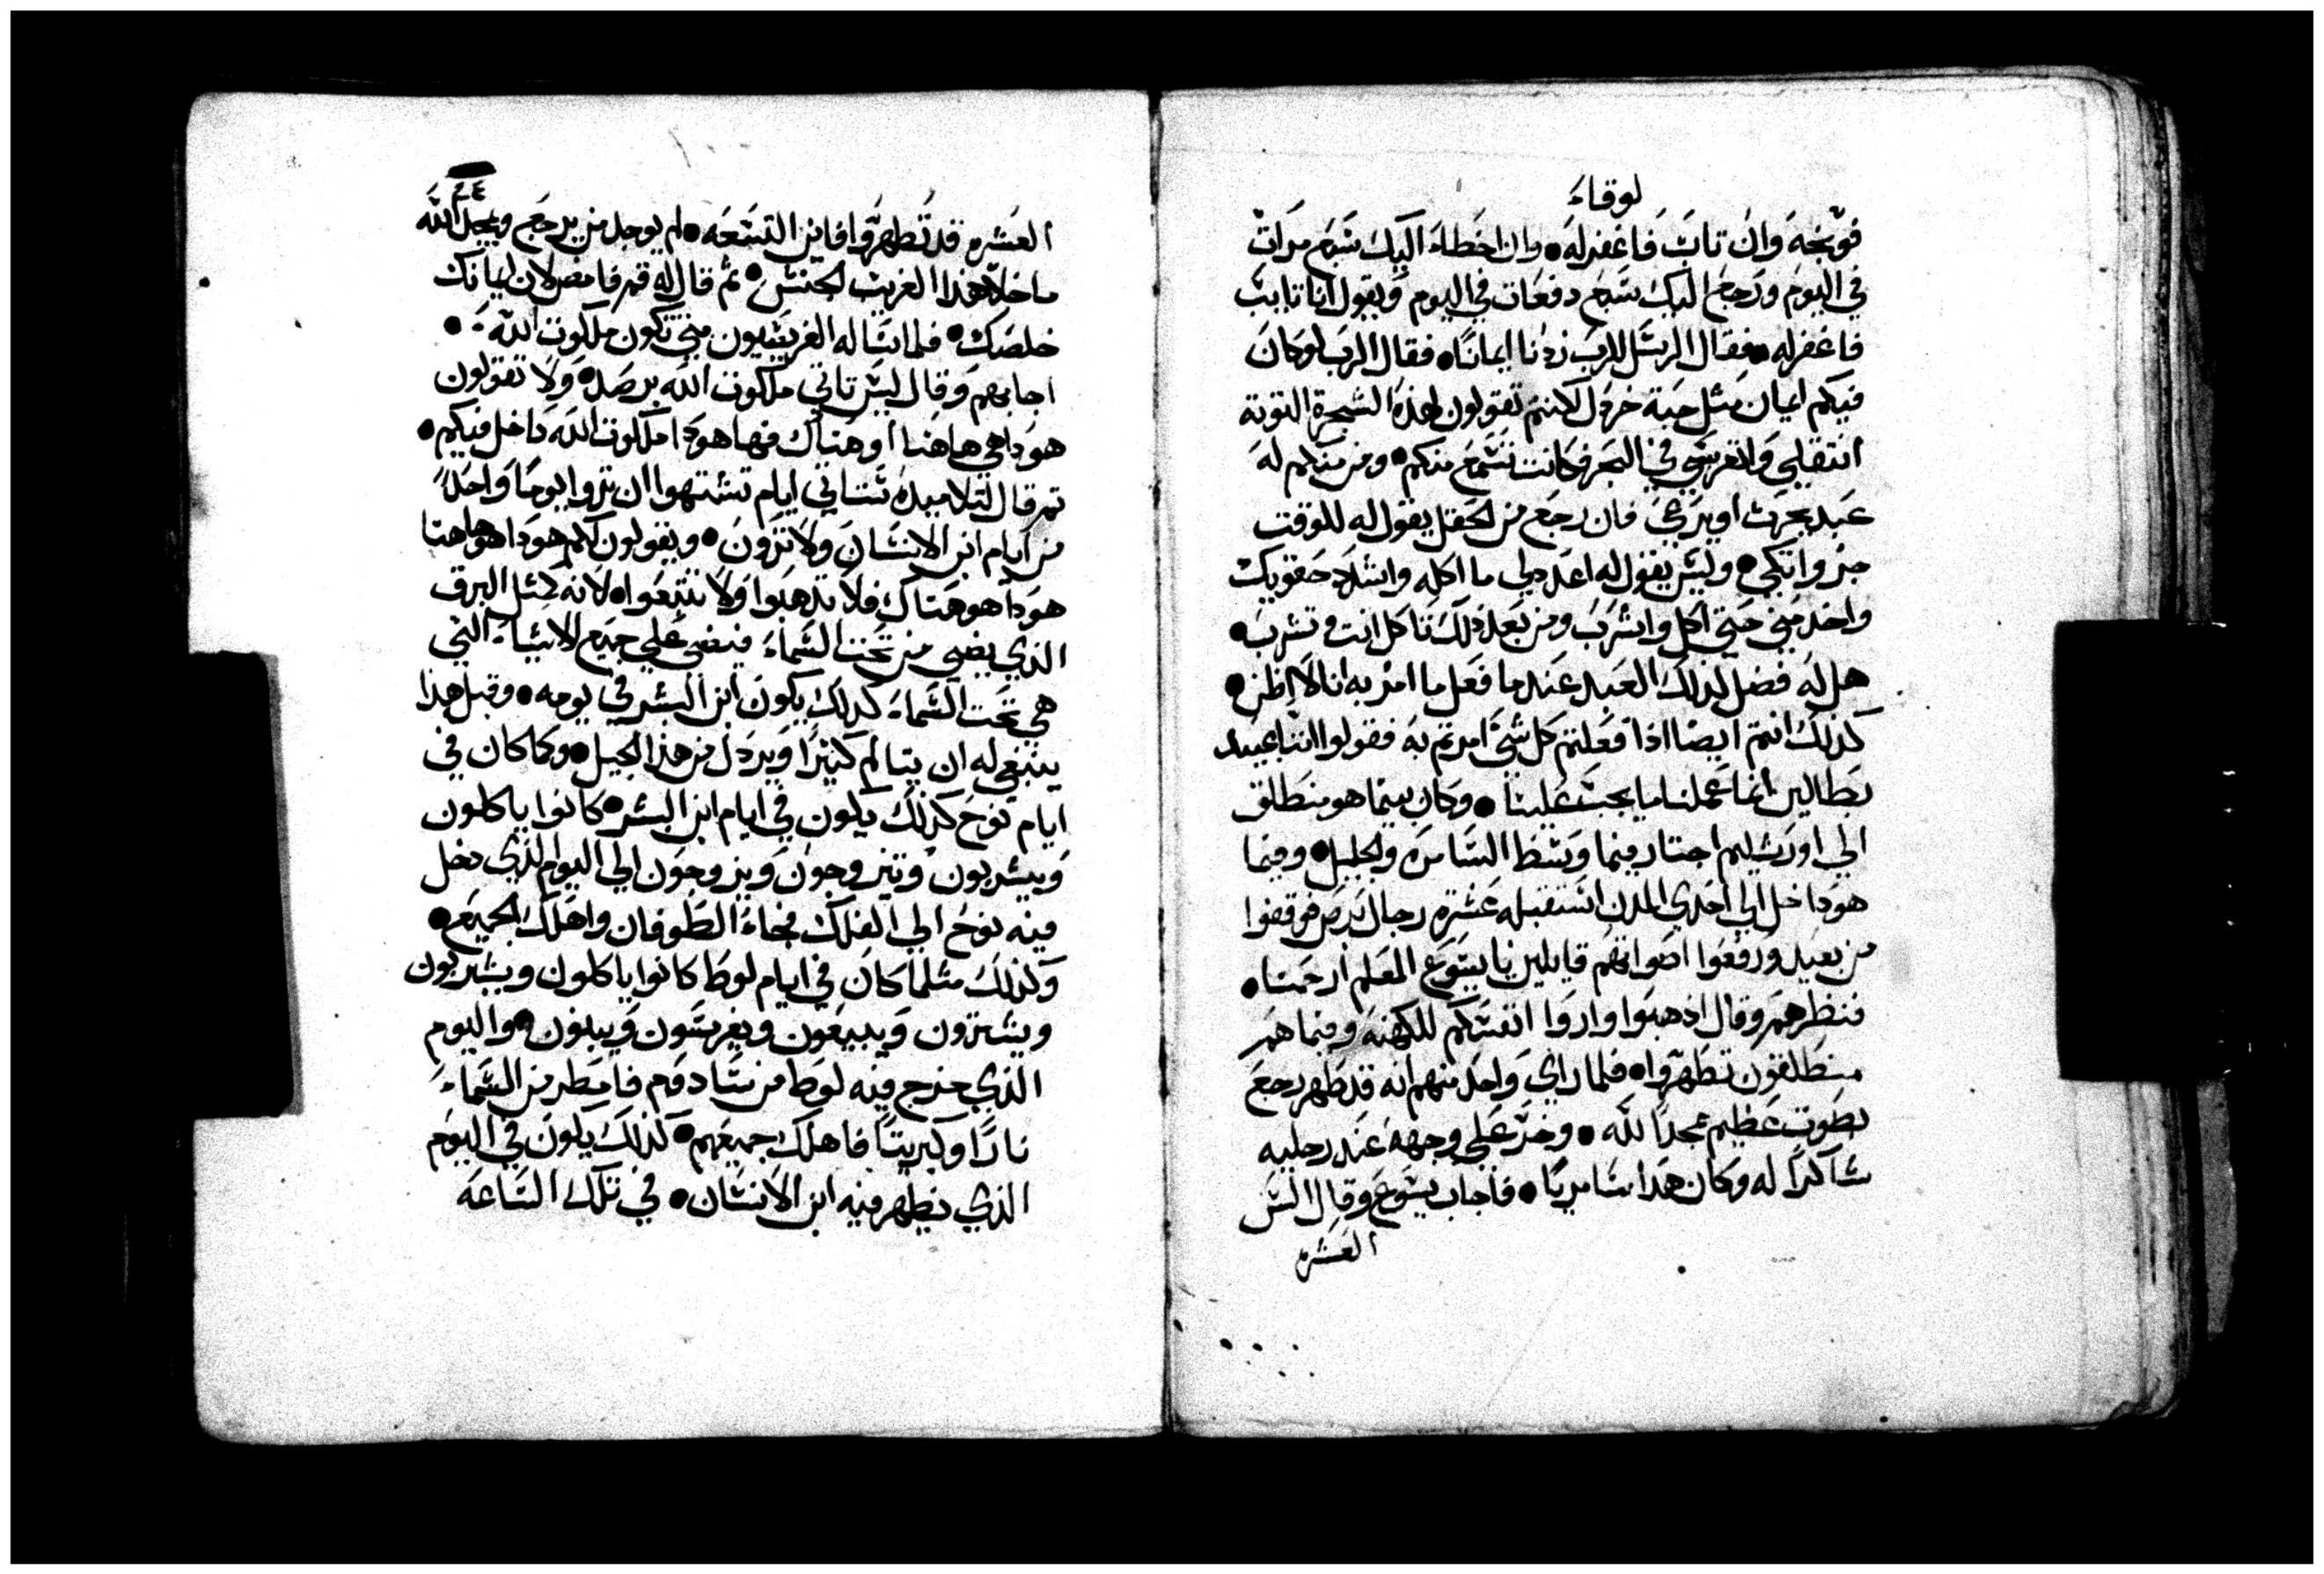 لوقاء
فوبخه وان تاب فاغفر له • وان اخطاء اليك سبع مرات
في اليوم ورجع اليك سبع دفعات في اليوم ويقول انا تايب
فاغفر له • فقال الرسل للرب زدنا ايمانا • فقال الرب لو كان
فيكم ايمان مثل حبة خردل لكنتم تقولون لهذه الشجرة التوتة
انتقلي وانغرسي في البحر فكانت تسمع منكم • ومن منكم له
عبد يحرث او يرعي فان رجع من الحقل يقول له للوقت
جز واتكي • وليس يقول له اعد لي ما اكله واشدد حقويك
واخدمني حتي اكل واشرب ومن بعد ذلك تاكل انت وتشرب •
هل له فضل لذلك العبد عندما فعل ما امر به انا لا اظن •
كذلك انتم ايضا اذا فعلتم كل شي امرتم به فقولوا اننا عبيد
بطالين انما عملنا ما يجب علينا • وكان بينما هو منطلق
الي اورشليم اجتاز فيما وسط السامره والجليل • وفيما
هو داخل الي احدي المدن استقبله عشره رجال برص فوقفوا
من بعيد ورفعوا اصواتهم قايلين يا يسوع المعلم ارحمنا •
فنظرهم وقال اذهبوا واروا انفسكم للكهنه وفيما هم
منطلقون تطهروا • فلما راي واحد منهم انه قد طهر رجع
بصوت عظيم ممجدا لله • وخر علي وجهه عند رجليه
شاكرا له وكان هذا سامريا • فاجاب يسوع وقال اليس
العشره
٢٤
العشره قد تطهروا فاين التسعه • لم يوجد من يرجع ويمجد الله
ما خلا هذا الغريب الجنس • ثم قال له قم فامض لان ايمانك
خلصك • فلما ساله الفريسيون متي تكون ملكوت الله •
اجابهم وقال ليس تاتي ملكوت الله برصد • ولا تقولون
هوذا هي هاهنا او هناك فها هوذا ملكوت الله داخل فيكم •
ثم قال لتلاميده ستاتي ايام تشتهوا ان تروا يوما واحدا
من ايام ابن الانسان ولا ترون • ويقولون لكم هودا هو هاهنا
هودا هو هناك فلا تدهبوا ولا تتبعوا • لانه كمثل البرق
الذي يضي من تحت السماء فيضي علي جميع الاشياء التي
هي تحت السماء كدلك يكون ابن البشر في يومه • وقبل هذا
ينبغي له ان يتالم كثيرا ويردل من هذا الجيل • وكما كان في
ايام نوح كذلك يكون في ايام ابن البشر • كانوا ياكلون
ويشربون وتتزوجون ويزوجون الي اليوم الذي دخل
فيه نوح الي الفلك فجاء الطوفان واهلك الجميع •
وكذلك مثلما كان في ايام لوط كانوا ياكلون ويشربون
ويشترون ويبيعون ويغرسون ويبنون • واليوم
الذي خرج فيه لوط من سادوم فامطر من السماء
نارا وكبريتا فاهلك جميعهم • كذلك يكون في اليوم
الذي يظهر فيه ابن الانسان • في تلك الساعه